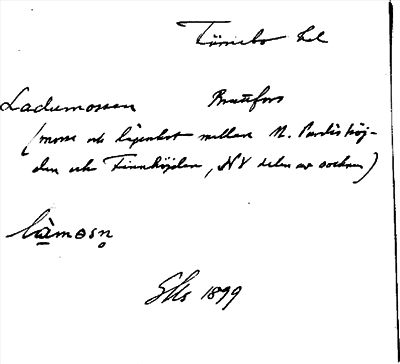 Färnebo hd
Ladumossen Brattfors
(mosse och lägenhet mellan N. Paradishöj-
den och Finnhöjden, NV delen av socknen)
làmosn̥
Eks 1899